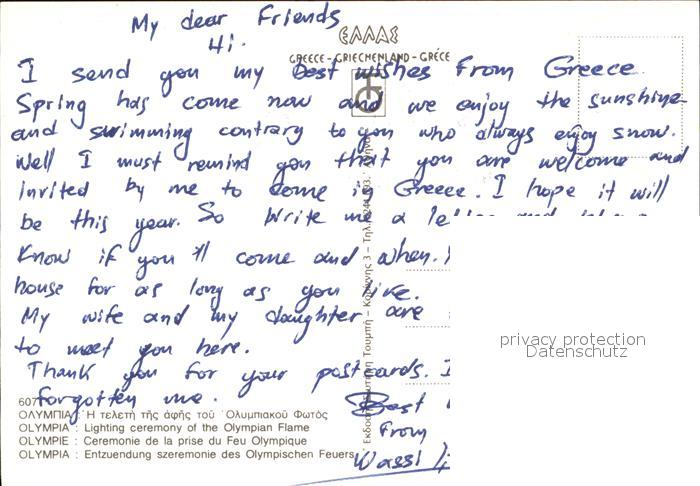 My dear Friends
Hi.
ΕΛΛΑΣ
GREECE - GRIECHENLAND - GRÈCE
I send you my best wishes From Greece.
Spring has come now and we enjoy the sunshine
and swimming contrary to you who always enjoy snow.
Well I must remind you that you are welcome and
invited by me to come in Greece. I hope it will
be this year. So Write me a
Know if you 'll come and when.
house for as long as you like.
My wife and my daughter are
to meet you here.
Thank you for your postcards. I
forgotten me.
Best
From
Wassili
607
ΟΛΥΜΠΙΑ : Ἡ τελετὴ τῆς ἁφῆς τοῦ Ὀλυμπιακοῦ Φωτὸς
OLYMPIA : Lighting ceremony of the Olympian Flame
OLYMPIE : Ceremonie de la prise du Feu Olympique
OLYMPIA : Entzuendung szeremonie des Olympischen Feuers
Τουμπῆ - Καρόρης 3 - Τηλ.
privacy protection
Datenschutz